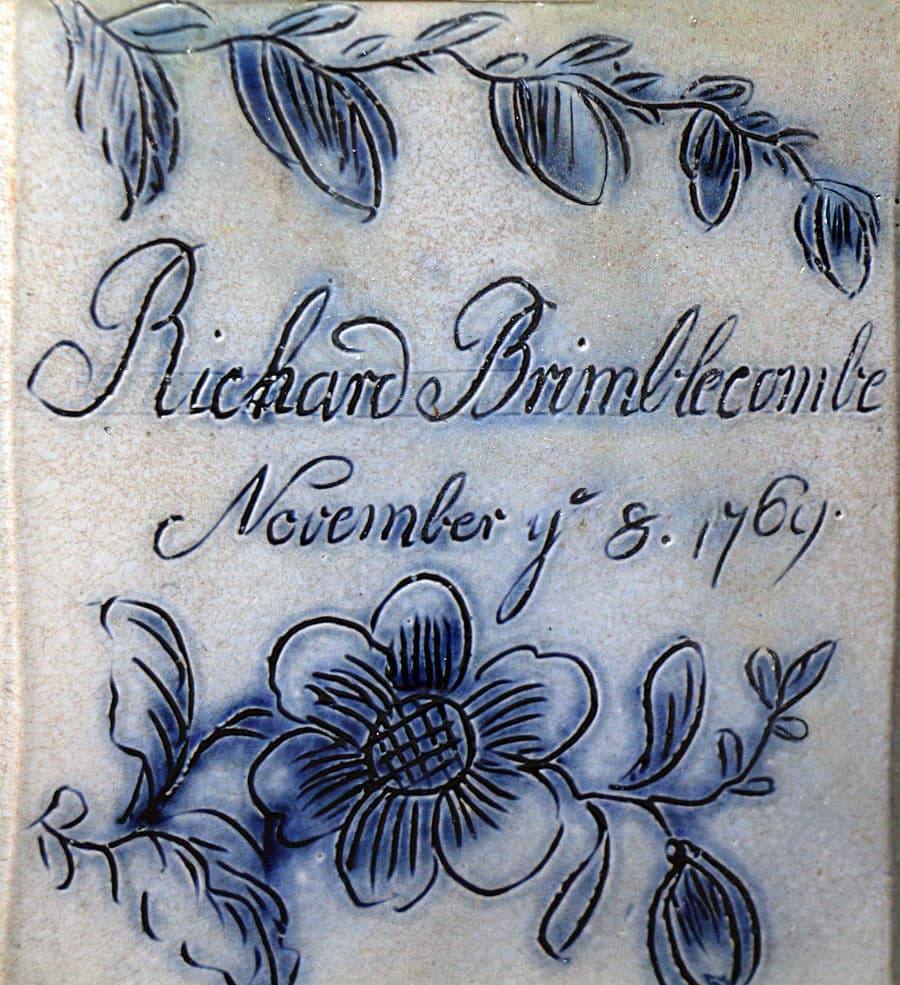 Richard Brimblecombe
November yͤ 8. 1769.